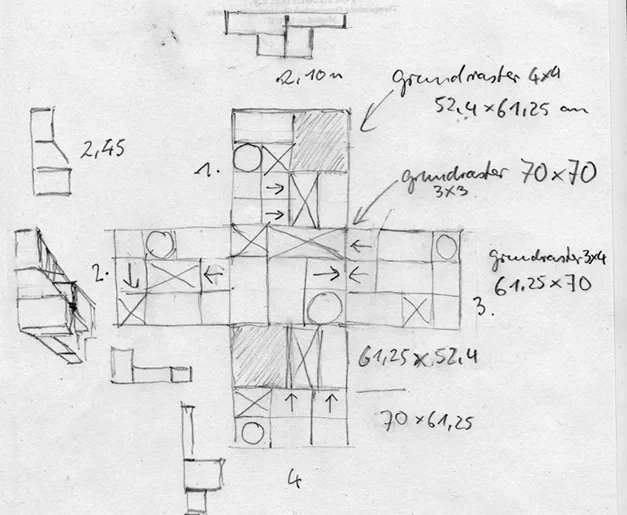 2,10m
Grundraster 4x4
52,4 x 61,25 cm
2,45
1.
Grundraster 70x70
3x3
2.
Grundraster 3x4
61,25 x 70
3.
61,25 x 52,4
70 x 61,25
4